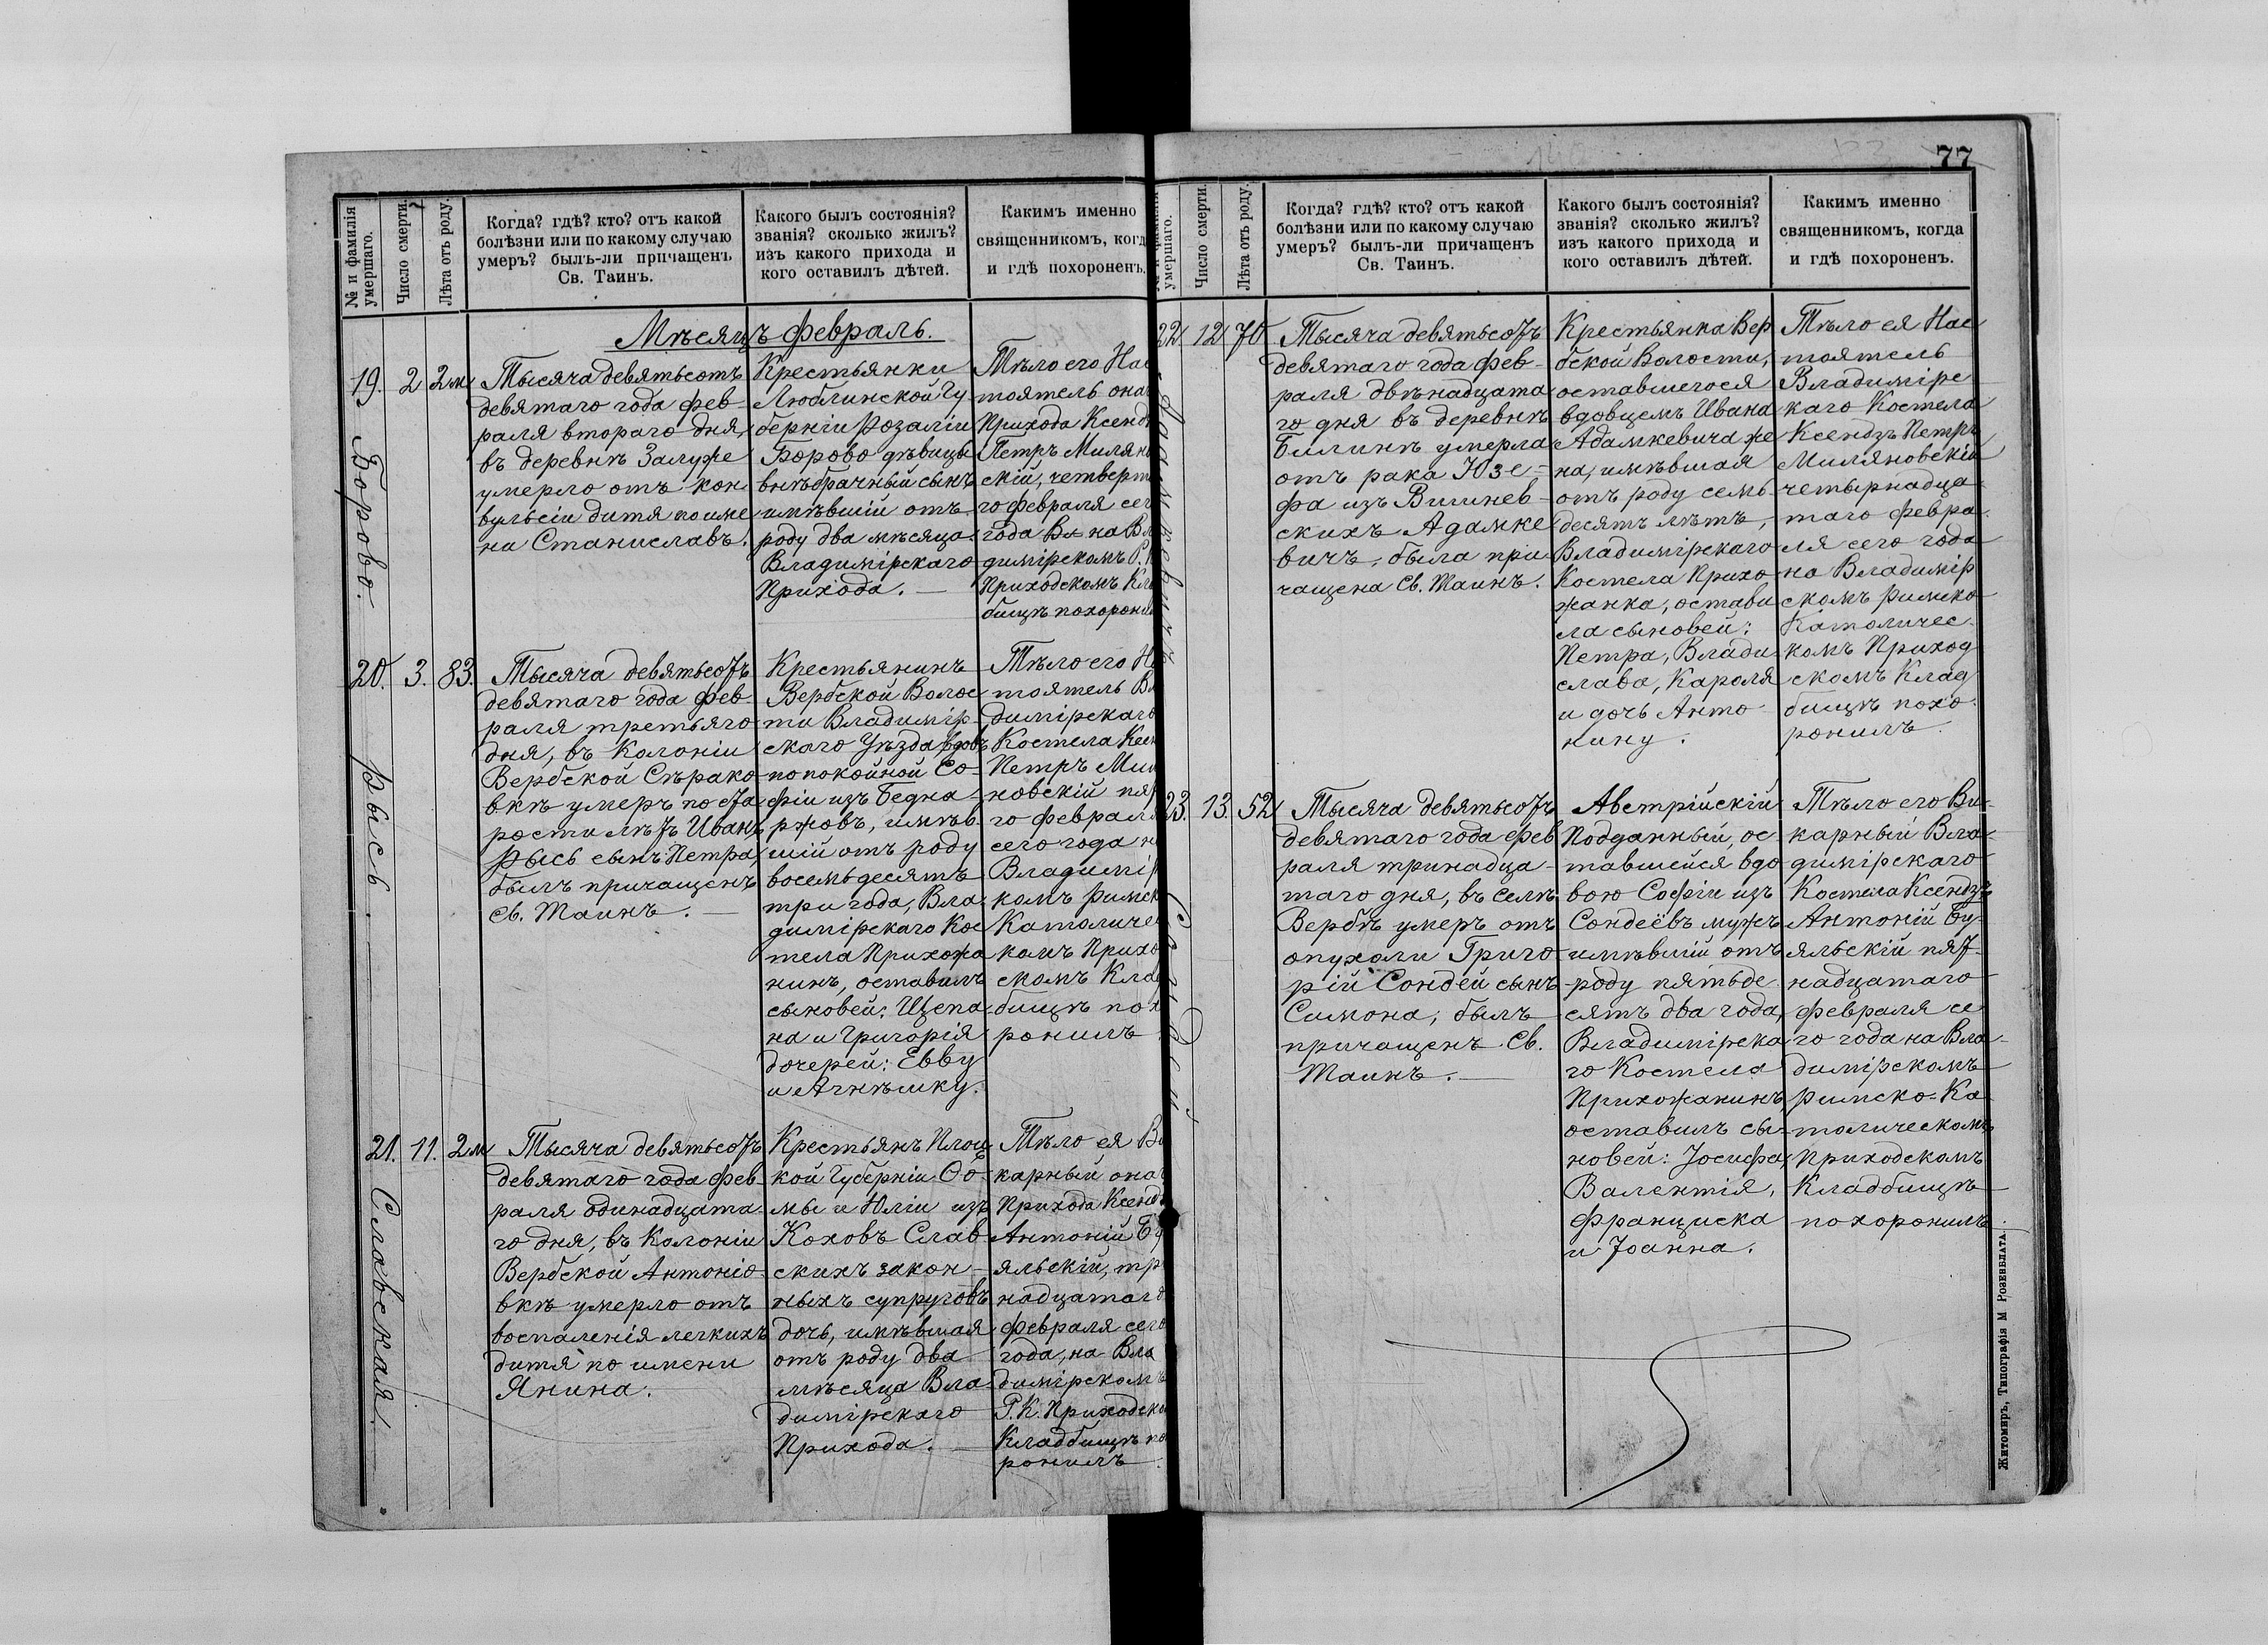 77
№ и фамилія
умершаго.
Число смерти.
Лѣта отъ роду.
Когда? гдѣ? кто? отъ какой
болѣзни или по какому случаю
умеръ? былъ-ли причащенъ
Св. Таинъ.
Какого былъ состоянія?
званія? сколько жилъ?
изъ какого прихода и
кого оставилъ дѣтей.
Какимъ именно
священникомъ, когд
и гдѣ похороненъ.
Мѣсяцъ февраль.
19.
Борово.
2
2м
Тысяча девятьсотъ
девятаго года фев-
раля втораго дня,
въ деревнѣ Залуже
умерло отъ кон
вульсіи дитя по име
ни Станиславъ.
Крестьянки
Люблинской Гу-
берніи Розаліи
Борово дѣвицы
внѣбрачный сынъ
имѣвшій отъ
роду два мѣсяца
Владимірскаго
Прихода. —
Тѣло его Нас
тоятель она
Прихода Ксенд
Петръ Милян
скій, четверт
го февраля сег
года на Вл
димірскомъ Р. К
Приходскомъ Кла
бищѣ похорони
20.
Рысь.
3.
83.
Тысяча девятьсотъ
девятаго года фев-
раля третьяго
дня, въ Колоніи
Вербской Сѣрако
вкѣ умеръ по ста
рости лѣтъ Иванъ
Рысь сынъ Петра,
былъ причащенъ
Св. Таинъ. —
Крестьянинъ
Вербской Волос
ти Владимір-
скаго Уѣзда вдовъ
по покойной Со-
фіи изъ Бедна-
ржовъ, имѣв
шій отъ роду
восемьдесятъ
три года, Вла
димірскаго Кос
тела Прихожа
нинъ, оставилъ
сыновей: Щепа
на и Григорія
дочерей: Евву
и Агнѣшку.
Тѣло его На
тоятель Вл
димірскаго
Костела Ксен
Петръ Мил
новскій пят
го февраля
сего года н
Владимір
комъ Римск
Католичес
комъ Прихо
скомъ Клад
бищѣ пох
ронилъ
21.
Славская.
11.
2м
Тысяча девятьсотъ
девятаго года фев-
раля одинадцата-
го дня, въ Колоніи
Вербской Антоніо-
вкѣ умерло отъ
воспаленія легкихъ
дитя по имени
Янина.
Крестьянъ Плоц
кой Губерніи Ѳо-
мы и Юліи изъ
Коховъ Слав-
скихъ закон-
ныхъ супруговъ
дочь, имѣвшая
отъ роду два
мѣсяца Вла-
димірскаго
Прихода. —
Тѣло ея Ви
карный она
Прихода Ксенд
Антоній Бу
яльскій, три
надцатаго
февраля сего
года, на Вла
димірскомъ
Р. К. Приходско
Кладбищѣ по
ронилъ
умершаго.
Число смерти.
Лѣта отъ роду.
Когда? гдѣ? кто? отъ какой
болѣзни или по какому случаю
умеръ? былъ-ли причащенъ
Св. Таинъ.
Какого былъ состоянія?
званія? сколько жилъ?
изъ какого прихода и
кого оставилъ дѣтей.
Какимъ именно
священникомъ, когда
и гдѣ похороненъ.
22.
Адамкевичъ
12
70
Тысяча девятьсотъ
девятаго года фев-
раля двѣнадцата
го дня въ деревнѣ
Билинѣ умерла
отъ рака Юзе-
фа изъ Вишнев-
скихъ Адамке
вичъ, была при
чащена Св. Таинъ.
Крестьянка Вер
бской Волости,
оставшегося
вдовцемъ Ивана
Адамкевича же
на, имѣвшая
отъ роду семь-
десятъ лѣтъ,
Владимірскаго
Костела Прихо
жанка, остави
ла сыновей:
Петра, Влади
слава, Кароля
и дочь Анто-
нину.
Тѣло ея Нас
тоятель
Владимірс
каго Костела
Ксендзъ Петръ
Миляновскій
четырнадца
таго февра
ля сего года
на Владимір
скомъ Римско
Католичес-
комъ Приход
скомъ Клад
бищѣ похо
ронилъ.
23.
Сондей
13.
52
Тысяча девятьсотъ
девятаго года фев
раля тринадца-
таго дня, въ селѣ
Вербѣ умеръ отъ
опухоли Григо
рій Сондей сынъ
Симона, былъ
причащенъ Св.
Таинъ. —
Австрійскій
Подданный, ос
тавшейся вдо
вою Софіи изъ
Сондеёвъ мужъ
имѣвшій отъ
роду пятьде
сятъ два года,
Владимірска
го Костела
Прихожанинъ,
оставилъ сы-
новей: Іосифа,
Валентія,
Франциска
и Іоанна.
Тѣло его Ви-
карный Вла-
димірскаго
Костела Ксендзъ
Антоній Бу-
яльскій пят-
надцатаго
февраля се
го года на Вла-
димірскомъ
Римско-Ка
толическомъ
Приходскомъ
Кладбищѣ
похоронилъ.
Житомиръ, Типографія М Розенблата.